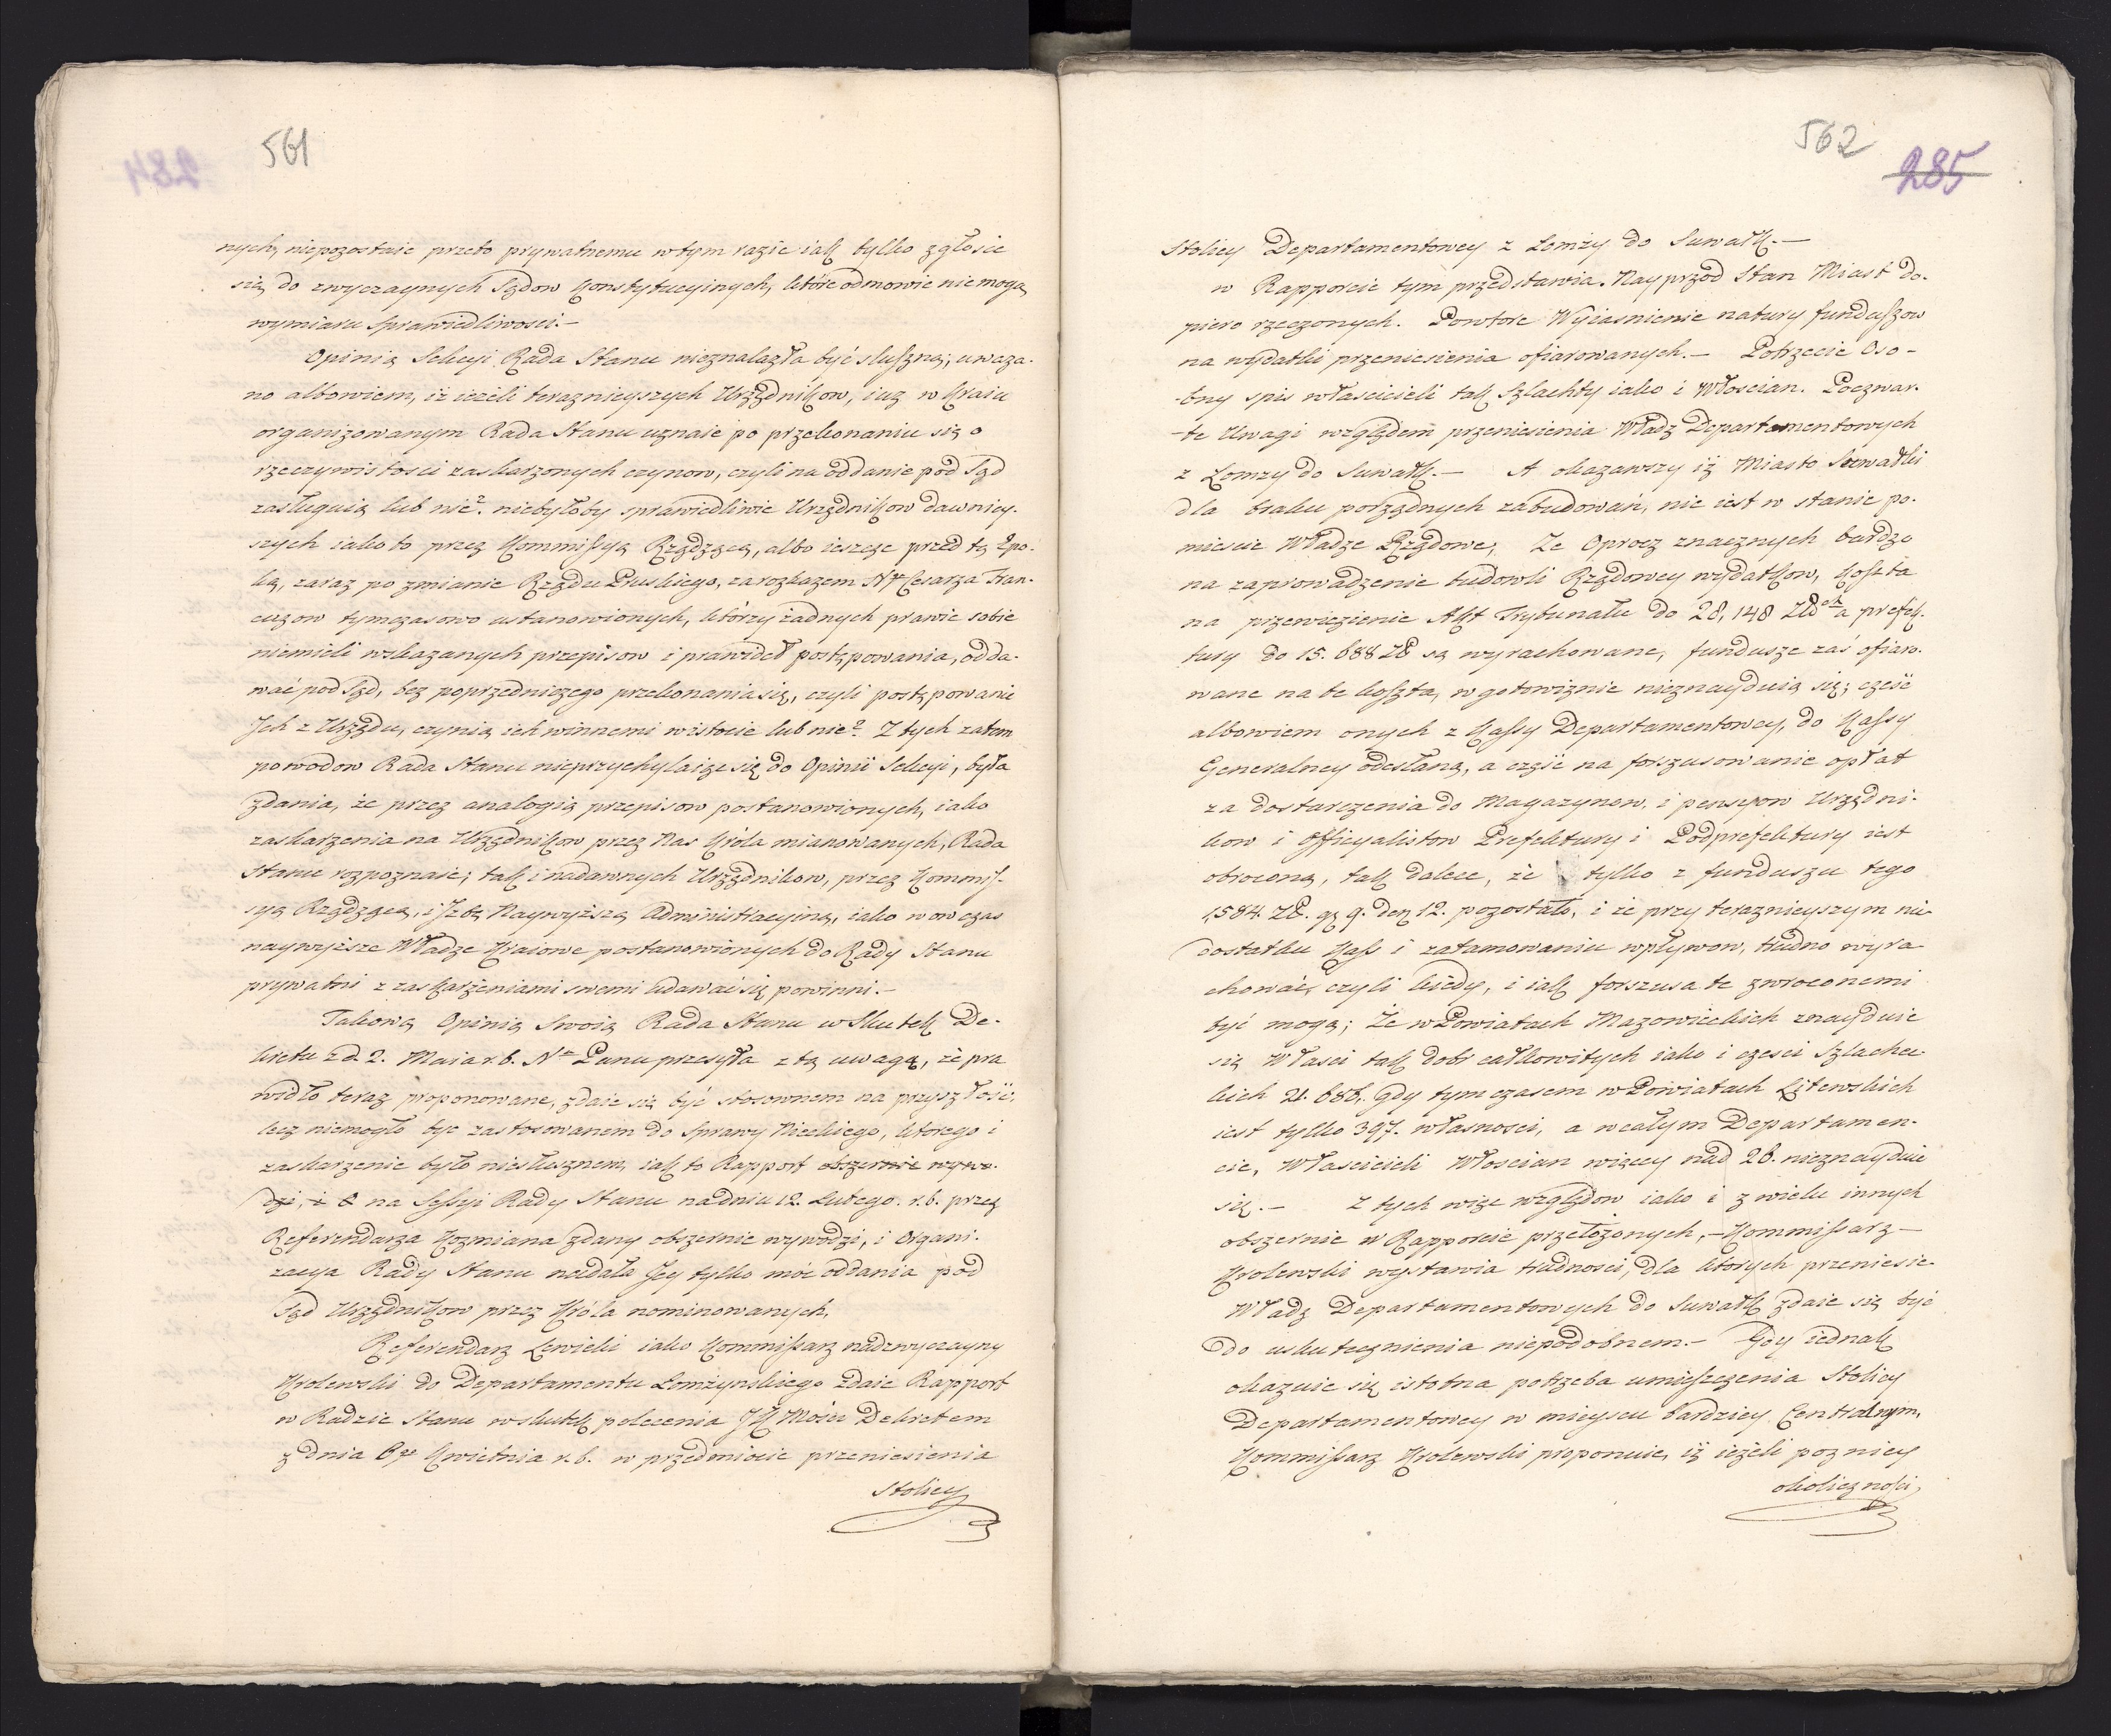 561
nych, niepozostaie przeto prywatnemu w tym razie iak tylko zgłosic
się do zwyczaynych Sądow Konstytucyinych, które odmowic nie mogą
wymiaru Sprawiedliwosci.—
Opinią Sekcyi Rada Stanu nieznalazła być słuszną; uwaza-
no albowiem, iż ieżeli teraznieyszych Urzędnikow, iuz w Kraiu
organizowanym Rada Stanu uznaie po przekonaniu się o
rzeczywistosci zaskarzonych czynow, czyli na oddanie pod Sąd
zasługuią lub nie? niebyłoby sprawiedliwie Urzędnikow dawniey-
szych iako to przez Kommissyą Rządzącą, albo ieszcze przed tą Epo-
ką, zaraz po zmianie Rządu Pruskiego, za rozkazem Nº Cesarza Fran-
cuzow tymczasowo ustanowionych, którzy żadnych prawie sobie
niemieli wskazanych przepisow i prawideł postępowania, odda-
wać pod Sąd, bez poprzedniczego przekonania się, czyli postępowanie
Ich z Urzędu, czynią ich winnemi w istocie lub nie? Z tych zatem
powodow Rada Stanu nieprzychylaiąc się do Opinii Sekcyi, była
zdania, że przez analogią przepisow postanowionych, iako
zaskarzenia na Urzędnikow przez Nas Króla mianowanych, Rada
Stanu rozpoznaie; tak i na dawnych Urzędnikow, przez Kommis-
syą Rządzącą, i Izbę Naywyższą Administracyiną, iako wowczas
naywyższe Władze Kraiowe postanowionych do Rady Stanu
prywatni z zaskarżeniami swemi udawać się powinni.—
Takową Opinią Swoią Rada Stanu w Skutek De-
kretu z d. 2. Maia r. b. Nº Panu przesyła z tą uwagą, że pra
widło teraz proponowane, zdaie się być stosownem na przyszłość,
lecz niemogło byc zastosowanem do Sprawy Nieckiego, ktorego i
zaskarzenie było niesłusznem, iak to Rapport obszernie wywo-
dzi, i na Sessyi Rady Stanu na dniu 12. Lutego. r. b. przez
Referendarza Kozmiana zdany obszernie wywodzi, i Organi-
zacya Rady Stanu nadała Jey tylko móc oddania pod
Sąd Urzędnikow przez Króla nominowanych.
Referendarz Lewicki iako Kommissarz nadzwyczayny
Krolewski do Departamentu Lomżynskiego zdaie Rapport
w Radzie Stanu w skutek polecenia JK Mości Dekretem
z dnia 6go Kwietnia r. b. w przedmiocie przeniesienia
Stolicy
562
285
Stolicy Departamentowey z Lomży do Suwałk.—
w Rapporcie tym przedstawia. Nayprzod Stan Miast do-
piero rzeczonych. Powtore Wyiasnienie natury funduszow
na wydatki przeniesienia ofiarowanych.— Potrzecie Oso-
-bny spis właścicieli tak Szlachty iako i Włoscian. Poczwar-
-te Uwagi względem przeniesienia Władz Departamentowych
z Lomzy do Suwałk.— A okazawszy iż Miasto Suwałki
dla braku porządnych zabudowań, nie iest w stanie po-
miescic Władze Rządowe; Ze Oprocz znacznych bardzo
na zaprowadzenie budowli Rządowey wydatkow, Koszta
na przewiezienie Akt Trybunału do 28,148 Złch a prefek-
tury do 15.688 Zł są wyrachowane, fundusze zaś ofiaro-
wane na te koszta, w gotowiznie nieznayduią się; część
albowiem onych z Kassy Departamentowey, do Kassy
Generalney odesłaną, a część na forszusowanie opłat
za dostarczenia do Magazynow. i pensyow Urzędni-
kow i Officyalistow Prefektury i Podprefektury iest
obroconą, tak dalece, że tylko z funduszu tego
1,584. Zł. gr 9. den 12. pozostało, i że przy teraznieyszym nie
dostatku Kass i zatamowaniu wpływow, trudno wyra
chować, czyli kiedy, i iak forszusa te zwroconemi
być mogą; Że w Powiatach Mazowieckich znayduie
się Włości tak dobr całkowitych iako i czesci Szlachec
kich 21.686. gdy tymczasem w Powiatach Litewskich
iest tylko 397. własnosci, a w całym Departamen-
cie, Właścicieli Włoscian więcey nad 26. nieznayduie
się.— Z tych więc względow iako i z wielu innych
obszernie w Rapporcie przełożonych,— Kommissarz—
Krolewski wystawia trudnosci, dla których przeniesie-
Władz Departamentowych do Suwałk zdaie się być
do uskutecznienia niepodobnem.— Gdy iednak
okazuie się istotna potrzeba umieszczenia Stolicy
Departamentowey w mieyscu bardziey Centralnym,
Kommissarz Krolewski proponuie, iż ieżeli pozniey
okolicznosci,